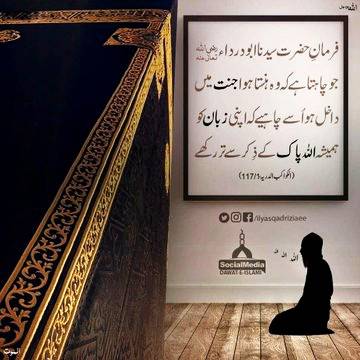 اللہ
فرمانِ حضرت سیدنا ابو درداء رضی اللہ تعالیٰ عنہ
جو چاہتا ہے کہ وہ ہنستا ہوا جنت میں
داخل ہو اُسے چاہیے کہ اپنی زبان کو
ہمیشہ اللہ پاک کے ذِکر سے تر رکھے
(الکواکب الدریۃ 1/117)
/ilyasqadriziaee
SocialMedia
DAWAT-E-ISLAMI
اللہ اللہ اللہ
الموت